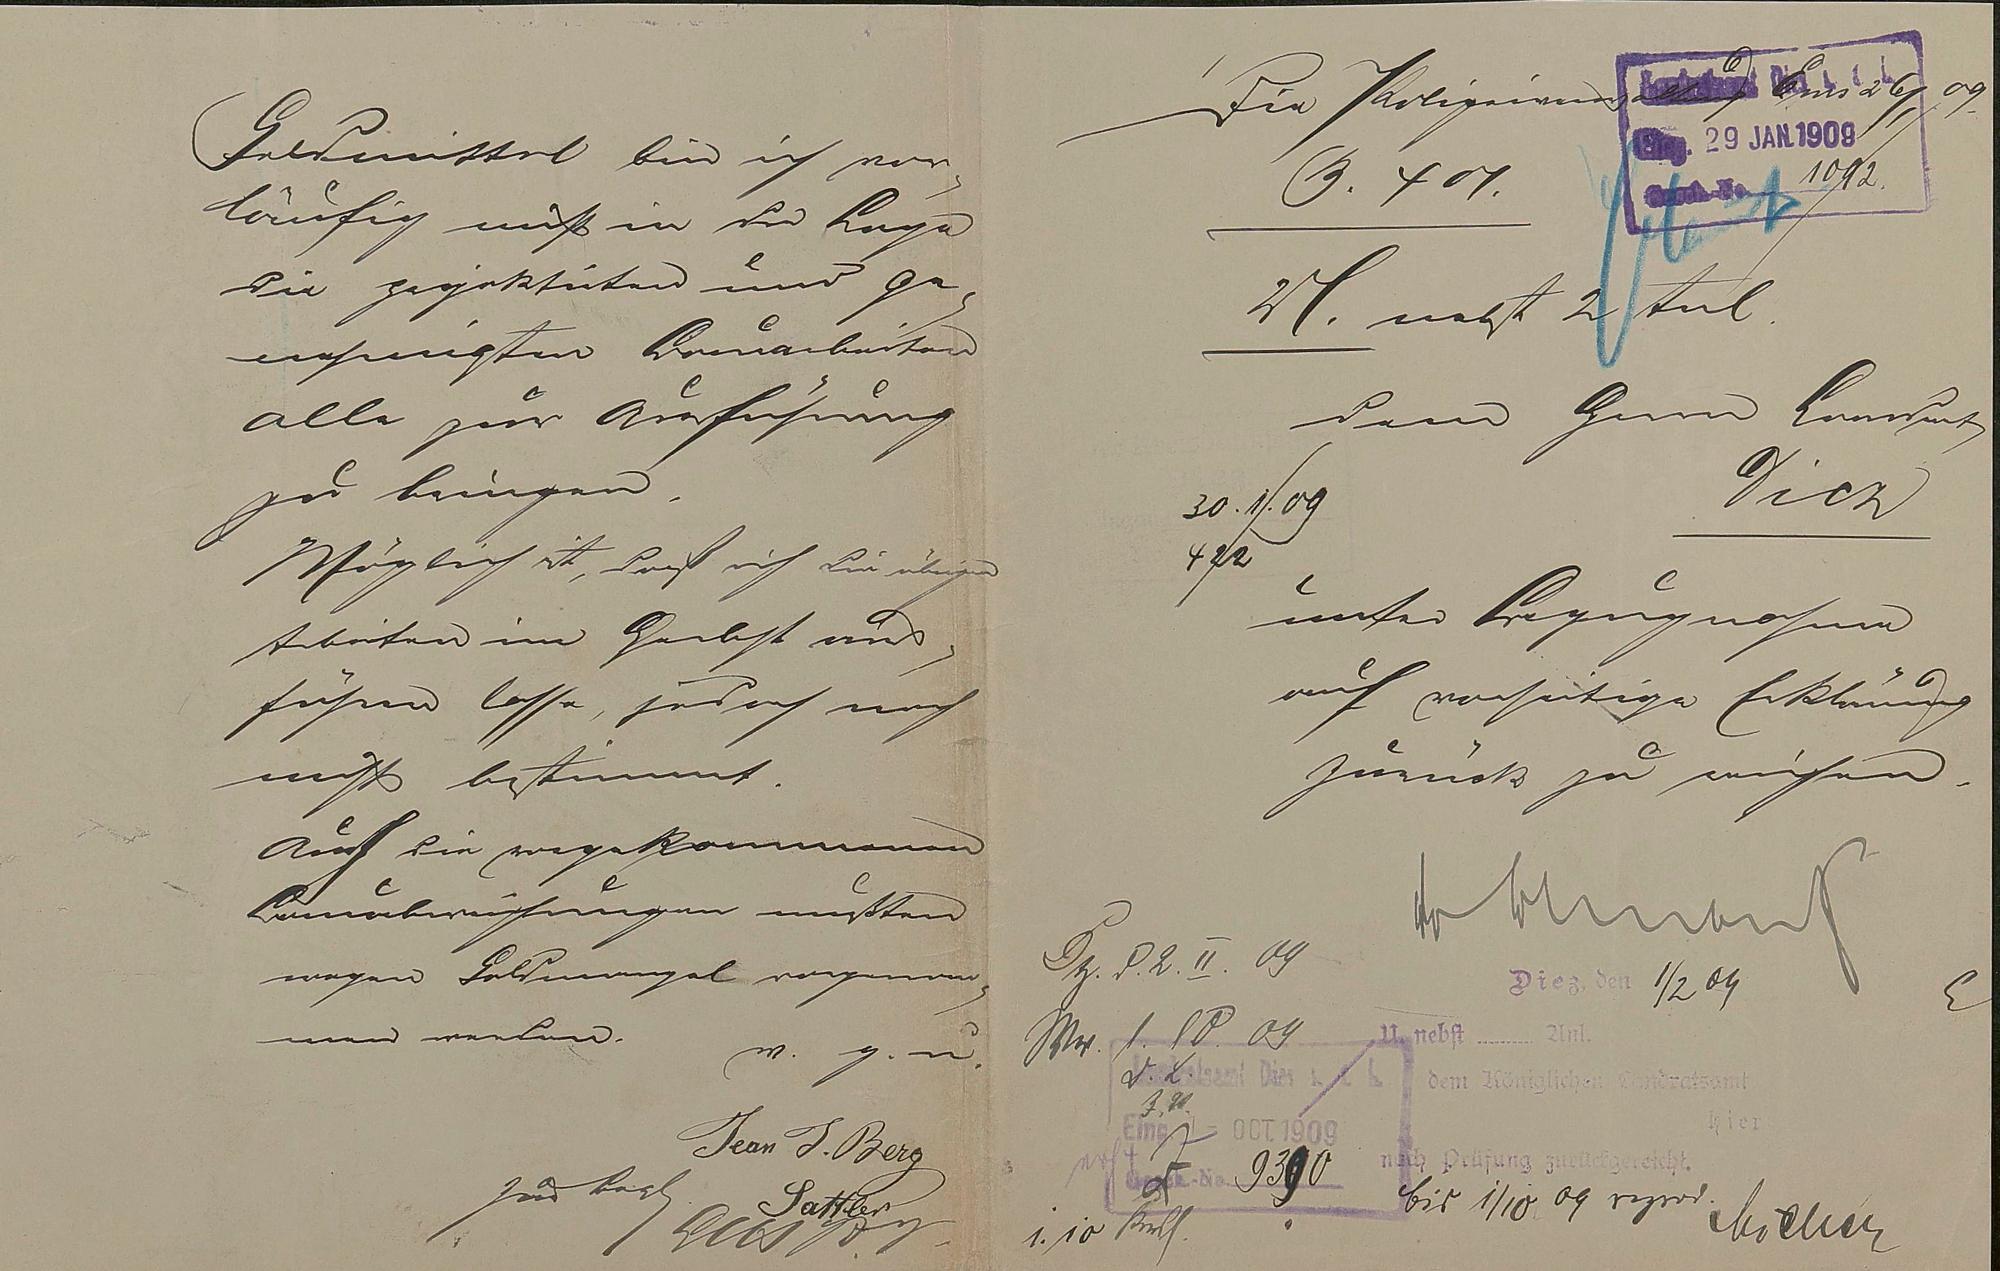 Geldmittel bin ich vor-
läufig nicht in der Lage
die projektirten und ge-
nehmigten Bauarbeiten
alle zur Ausführung
zu bringen.
Möglich ist, daß ich die übrigen
Arbeiten im Herbst aus-
führen lasse, jedoch noch
nicht bestimmt.
Auch die vorgekommenen
Bauabweichungen mußten
wegen Geldmangel vorgenom-
men werden.
v. g. u.
Jean J. Berg
Sattler
Die Polizeiverwaltung Ems 26/1 09.
B. 401.
Landratsamt Diez
Eing. 29 JAN. 1909
Gesch.-No. 1092.
U. nebst 2 Anl.
dem Herrn Landrat
Diez
30.1.09
422
unter Bezugnahme
auf vorseitige Erklärung
zurück zu reichen.
Diez, den 1/2 09
U. nebst Anl.
dem Königlichen Landratsamt
hier
nach Prüfung zurückgereicht.
bis 1/10 09
2. II. 09
09
Landratsamt Diez
Eing. 1 - OCT. 1909
Gesch.-No. 9390
1. 10